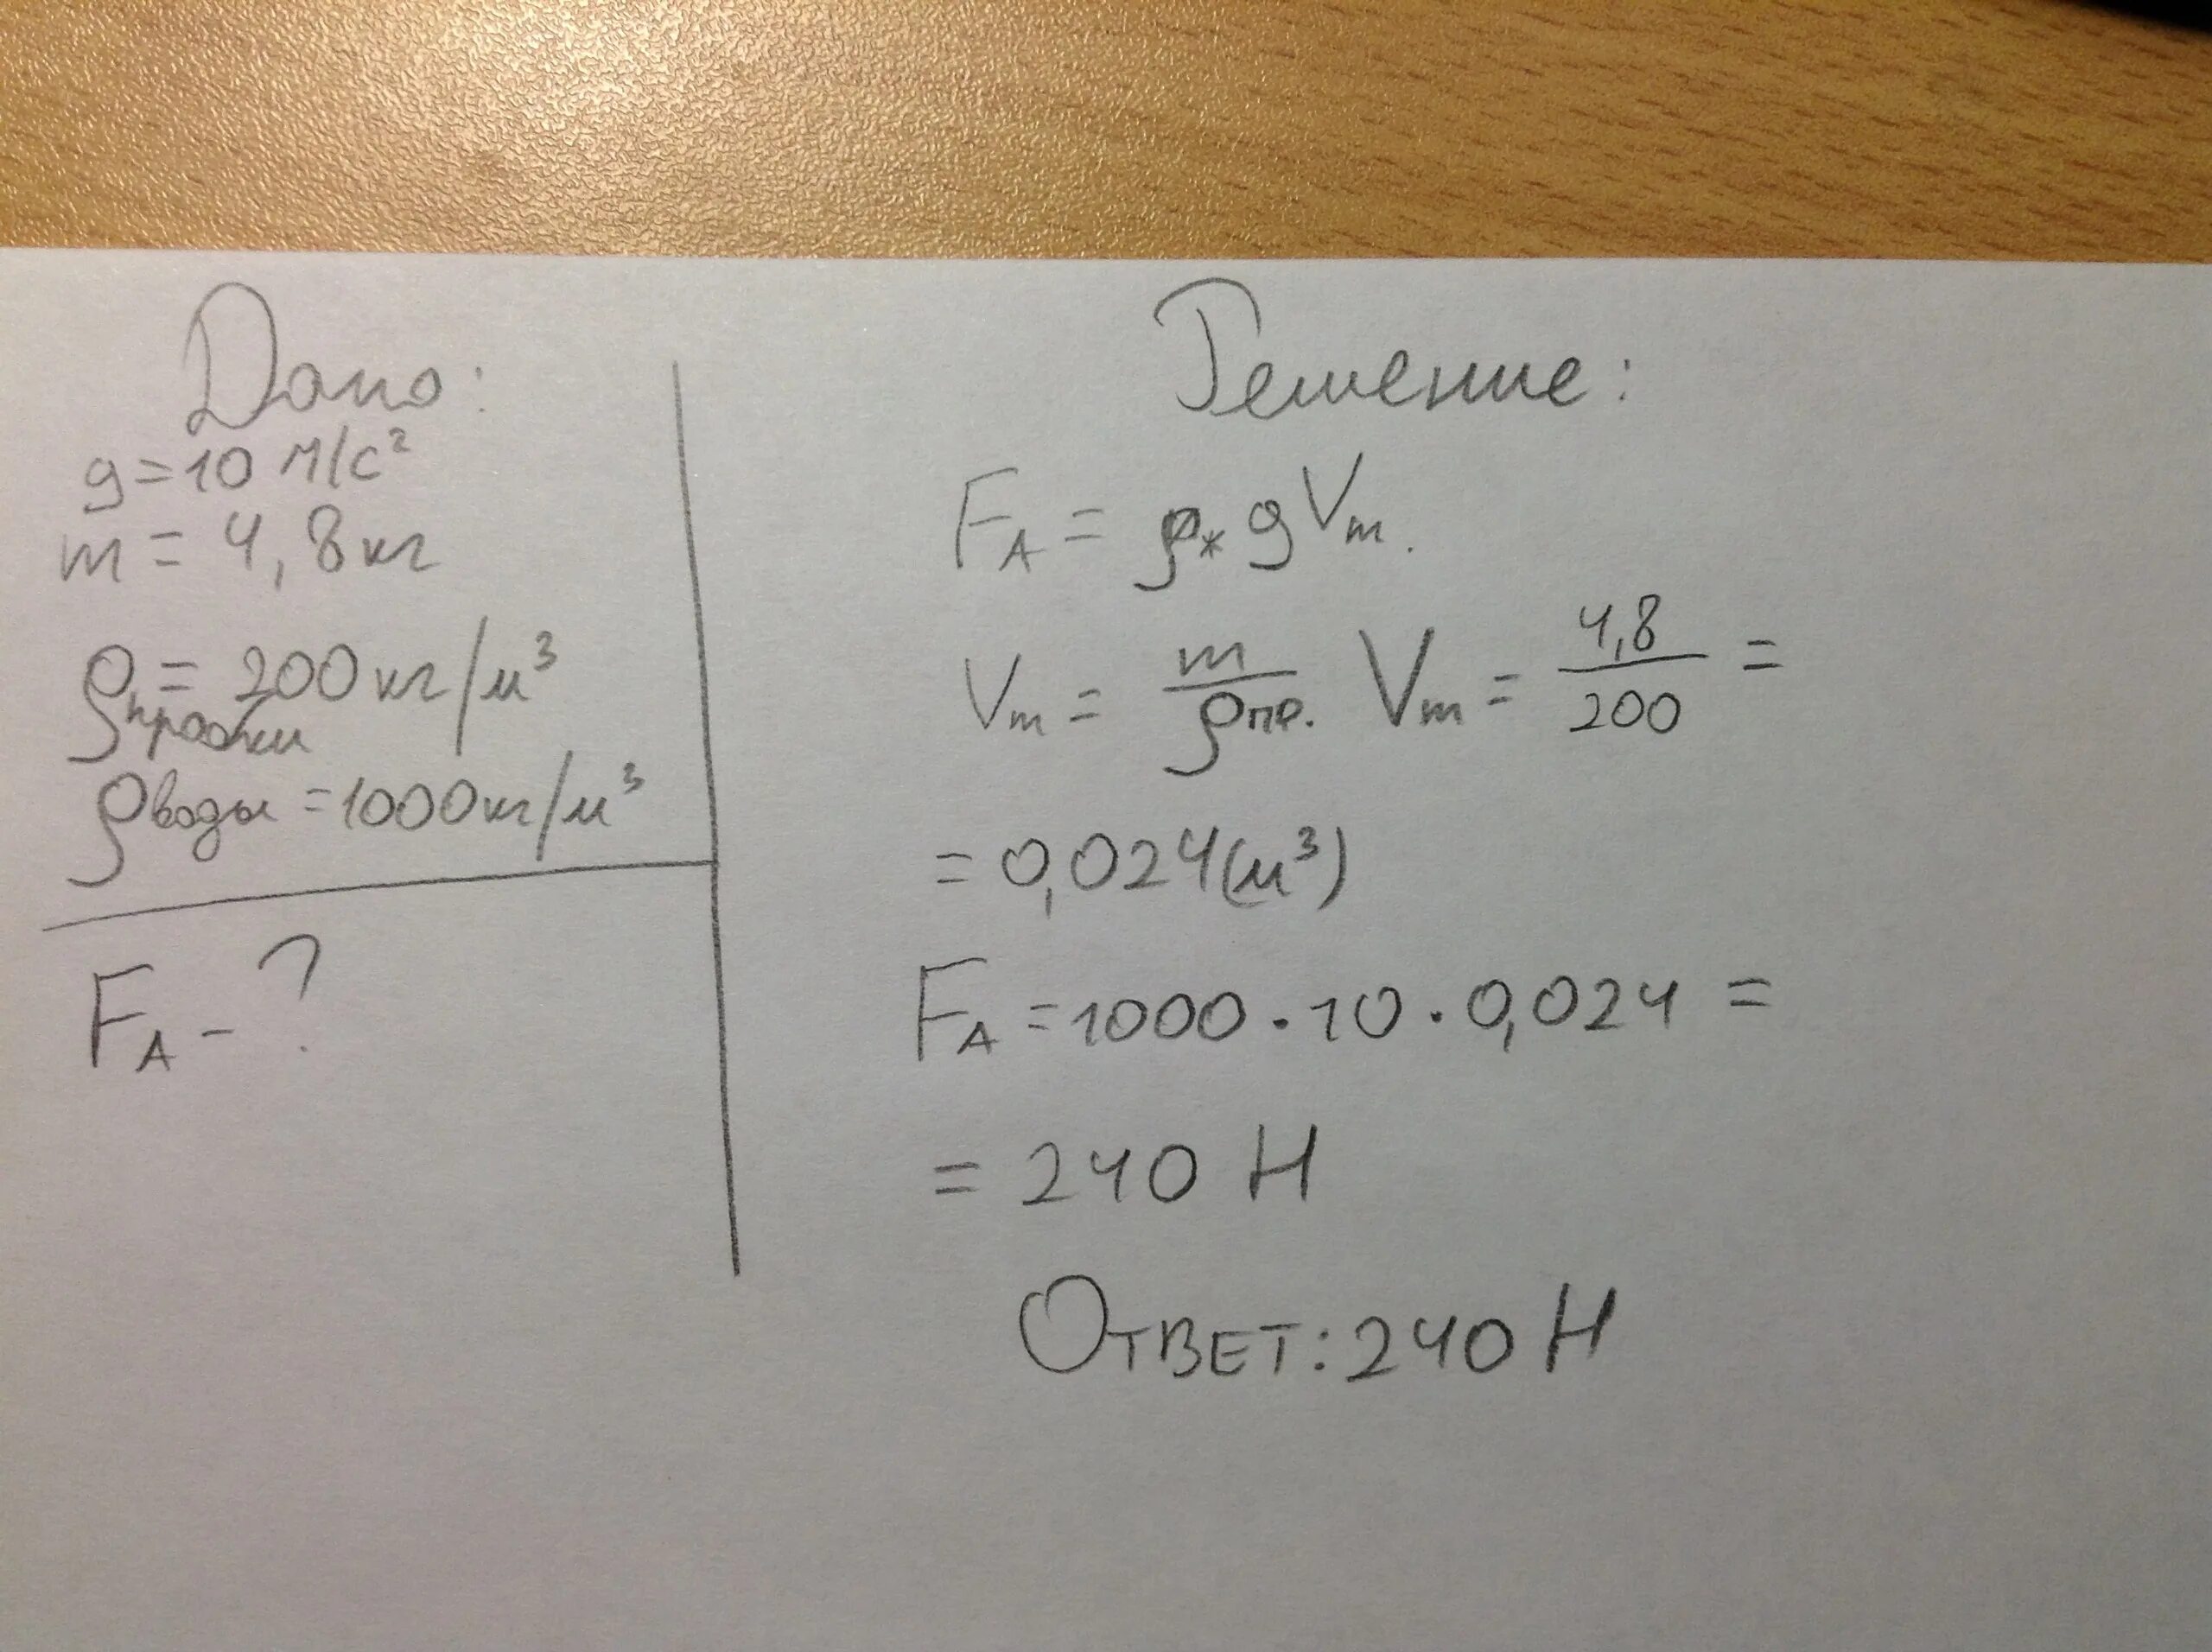 Дано:
g=10 м/с²
m = 4,8 кг
ρпробки = 200 кг/м³
ρводы = 1000 кг/м³
F_A - ?
Решение:
F_A = ρж g Vт.
Vт = m/ρпр. Vт = 4,8/200 =
= 0,024(м³)
F_A = 1000 · 10 · 0,024 =
= 240 Н
ОТВЕТ: 240 Н